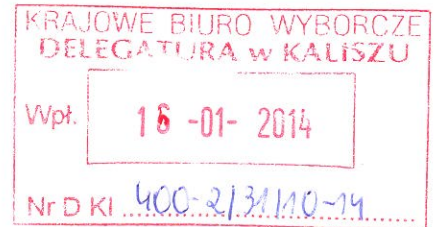 KRAJOWE BIURO WYBORCZE
DELEGATURA w KALISZU
Wpł. 16 -01- 2014
Nr D Kl 400-2/31/10-14